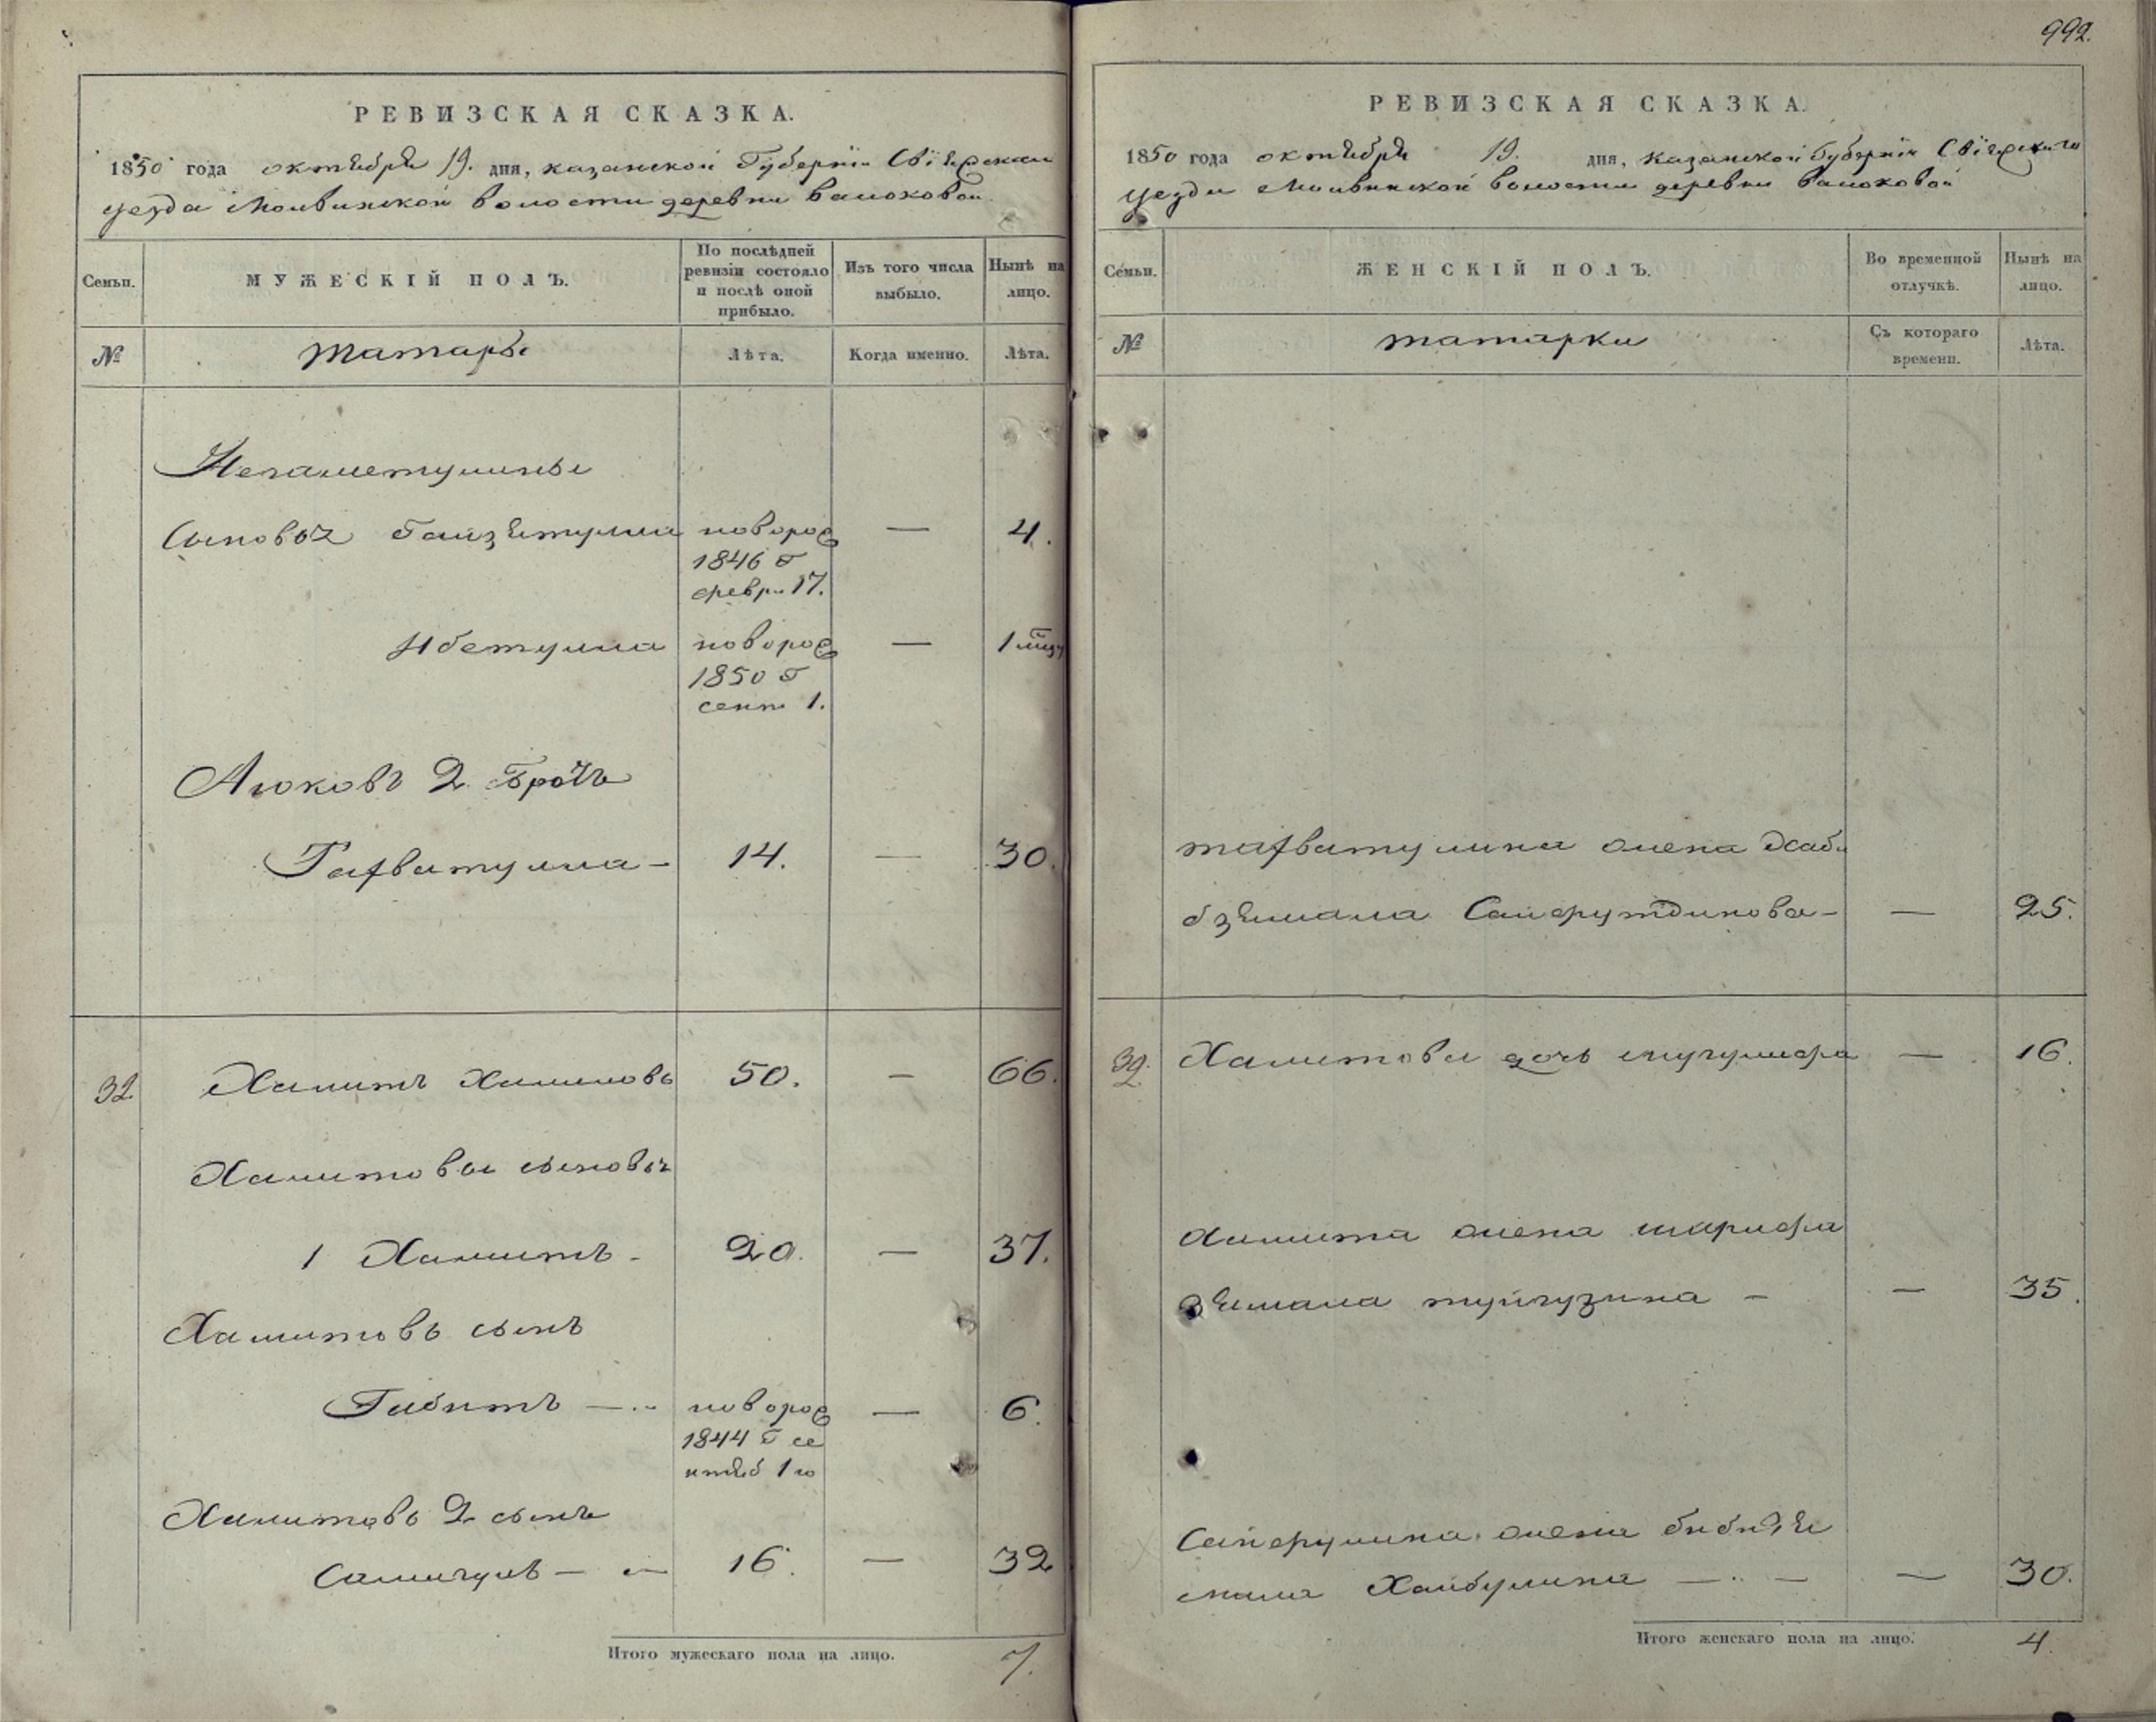 992.
РЕВИЗСКАЯ СКАЗКА.
1850 года октября 19. дня, казанской Губернiи Свiяжскаго
уезда Молвинской волости деревни
Семьи.
МУЖЕСКІЙ ПОЛЪ.
По послѣдней
ревизіи состояло
и послѣ оной
прибыло.
Изъ того числа
выбыло.
Нынѣ на
лицо.
№
татары
Лѣта.
Когда именно.
Лѣта.
Негаметулины
сыновья новорож — 4.
1846 г
февра 17.
новорож — 1 мця
1850 г
сент 1.
Аюковъ 2 братъ
14. — 30.
32. Хамитъ 50. — 66.
Хамитовы сыновья
1 Хамитъ — 20. — 37.
Хамитовъ сынъ
Габитъ — новорож — 6.
1844 г се
нтяб 1 го
Хамитовъ 2 сынъ
16. — 32
Итого мужескаго пола на лицо. 7.
РЕВИЗСКАЯ СКАЗКА.
1850 года октября 19. дня, казанской Губернiи Свiяжскаго
уезда Молвинской волости деревни
Семьи.
ЖЕНСКІЙ ПОЛЪ.
Во временной
отлучкѣ.
Нынѣ на
лицо.
№
татарки
Съ котораго
времени.
Лѣта.
жена Хаби
бзямала Сайфутдинова — — 25.
32. Хамитова дочь — 16.
Хамита жена шарифа
зямала туйгузина — — 35.
Сайфулина жена бибизя
мала Хайбулина — — 30.
Итого женскаго пола на лицо. 4.